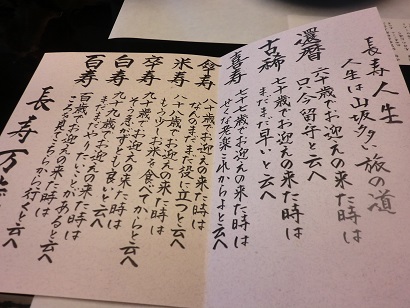 長寿人生
人生は山坂多い旅の道
還暦
六十歳でお迎えの来た時は
只今留守と云へ
古稀
七十歳でお迎えの来た時は
まだまだ早いと云へ
喜寿
七十七歳でお迎えの来た時は
せくな老楽これからよと云へ
傘寿
八十歳でお迎えの来た時は
なんのまだまだ役に立つと云へ
米寿
八十八歳でお迎えの来た時は
もう少しお米を食べてからと云へ
卒寿
九十歳でお迎えの来た時は
そう急がずともよいと云へ
白寿
九十九歳でお迎えの来た時は
まだまだやりたいことがあると云へ
百寿
百歳でお迎えの来た時は
ころを見てこちらから行くと云へ
長寿万